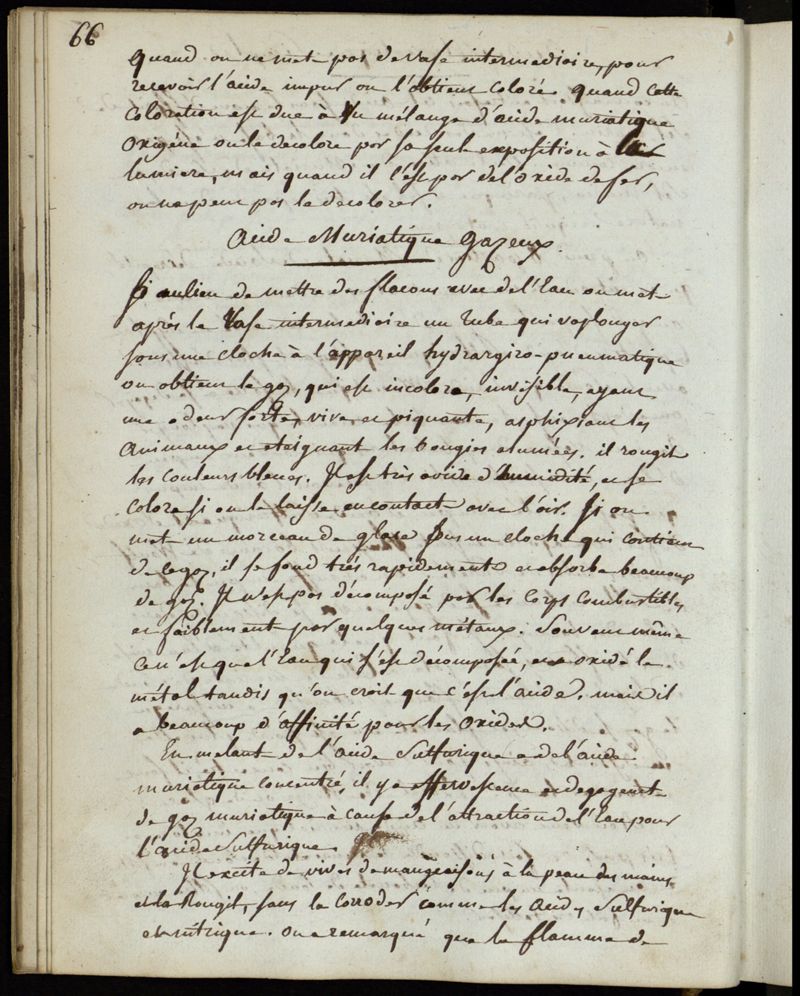 66
quand on ne met pas de vase intermedioire, pour
recevoir l'acide impur on l'obtient coloré. quand cette
coloration est due à un mélange d'acide muriatique
oxigéné on le decolore par sa seule exposition à la
lumiere, mais quand il l'est par de l'oxide de fer,
on ne peut pas le decolorer.
Acide Muriatique Gazeux.
Si au lieu de mettre des flacons avec de l'Eau on met
après le Vase intermedioire un tube qui va plonger
sous une cloche à l'appareil hydrargiro-pneumatique
on obtient le gaz, qui est incolore, invisible, ayant
une odeur forte, vive et piquante, asphixiant les
Animaux et eteignant les bougies alumées. il rougit
les couleurs bleues. Il est très avide d'humidité, et se
colore si on le laisse en contact avec l'air. Si on
met un morceau de glace sous un cloche qui contient
de ce gaz, il se fond très rapidement et absorbe beaucoup
de gaz. Il n'est pas décomposé par les Corps Combustibles
et faiblement par quelques métaux. Souvent même
ce n'est que l'Eau qui s'est décomposée, et a oxidé le
métal tandis qu'on croit que c'est l'acide. mais il
a beaucoup d'affinité pour les oxides.
En melant de l'acide Sulfurique et de l'acide
muriatique concentré, il y a effervescence et degagement
de gaz muriatique à cause de l'attraction de l'Eau pour
l'acide Sulfurique
Il excite de vives demangeaisons à la peau des mains
et la Rougit, sans la corroder comme les Acides Sulfurique
et nitrique. On a remarqué que la flamme de